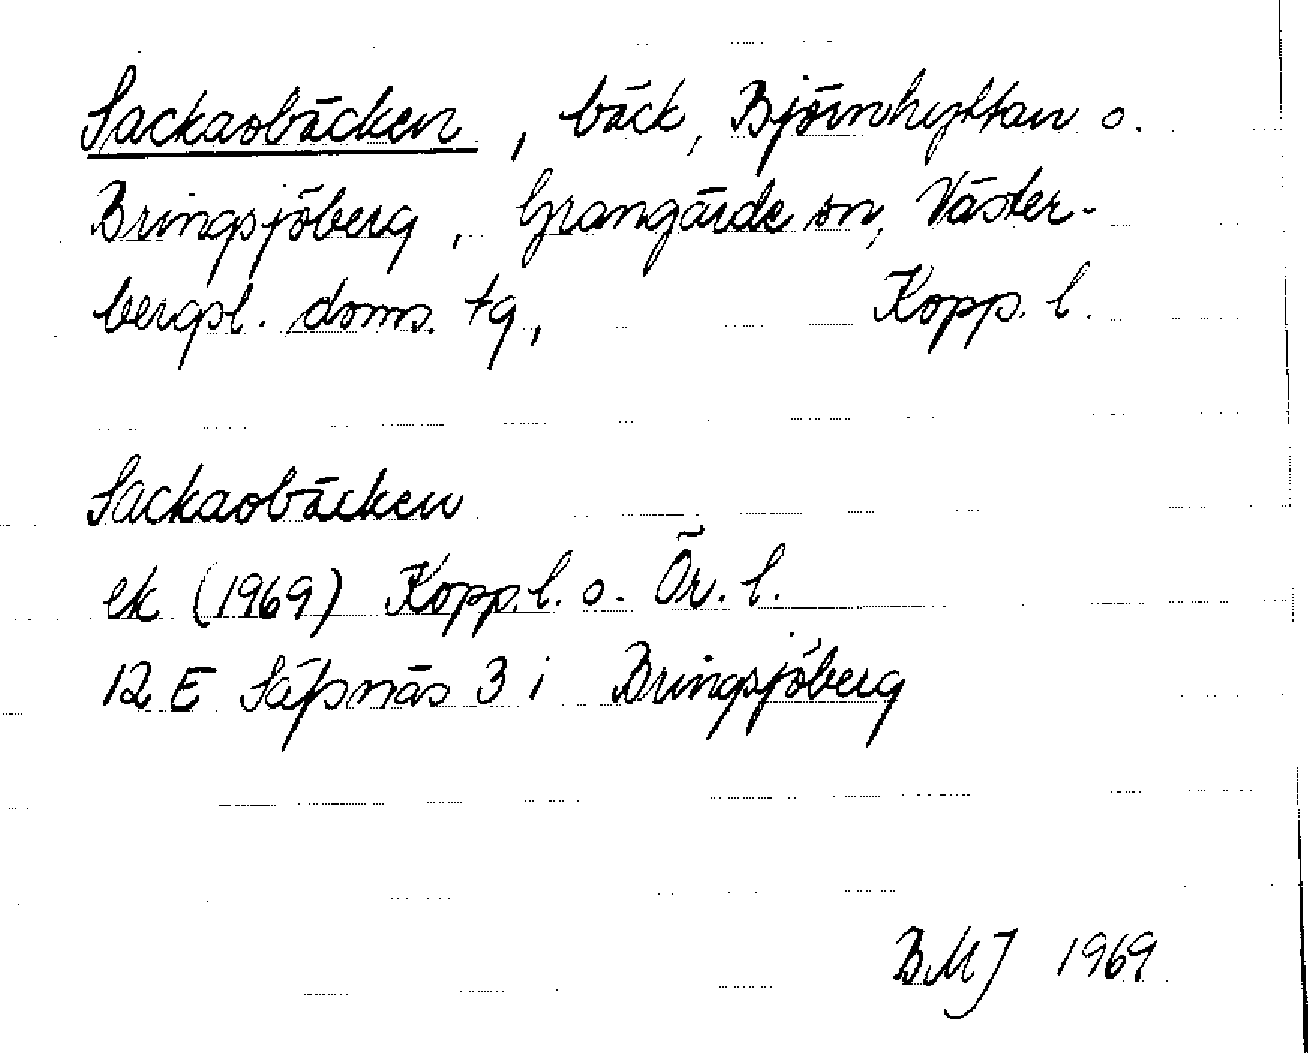 Sackasbäcken, bäck, Björnhyttan o.
Bringsjöberg, Grangärde sn, Väster-
bergsl. doms. tg, Kopp. l.
Sackasbäcken
ek (1969) Kopp. l. o. Ör. l.
12 E Säfsnäs 3 i Bringsjöberg
BMJ 1969